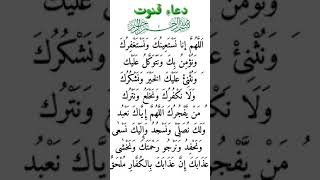 دعاء قنوت
بسم الله الرحمن الرحيم
اَللّٰهُمَّ اِنَّا نَسْتَعِيْنُكَ وَنَسْتَغْفِرُكَ
وَنُؤْمِنُ بِكَ وَنَتَوَكَّلُ عَلَيْكَ
وَنُثْنِيْ عَلَيْكَ الْخَيْرَ وَنَشْكُرُكَ
وَلَا نَكْفُرُكَ وَنَخْلَعُ وَنَتْرُكَ
مَنْ يَّفْجُرُكَ اَللّٰهُمَّ اِيَّاكَ نَعْبُدُ
وَلَكَ نُصَلِّيْ وَنَسْجُدُ وَاِلَيْكَ نَسْعٰى
وَنَحْفِدُ وَنَرْجُو رَحْمَتَكَ وَنَخْشٰى
عَذَابَكَ اِنَّ عَذَابَكَ بِالْكُفَّارِ مُلْحِقٌ